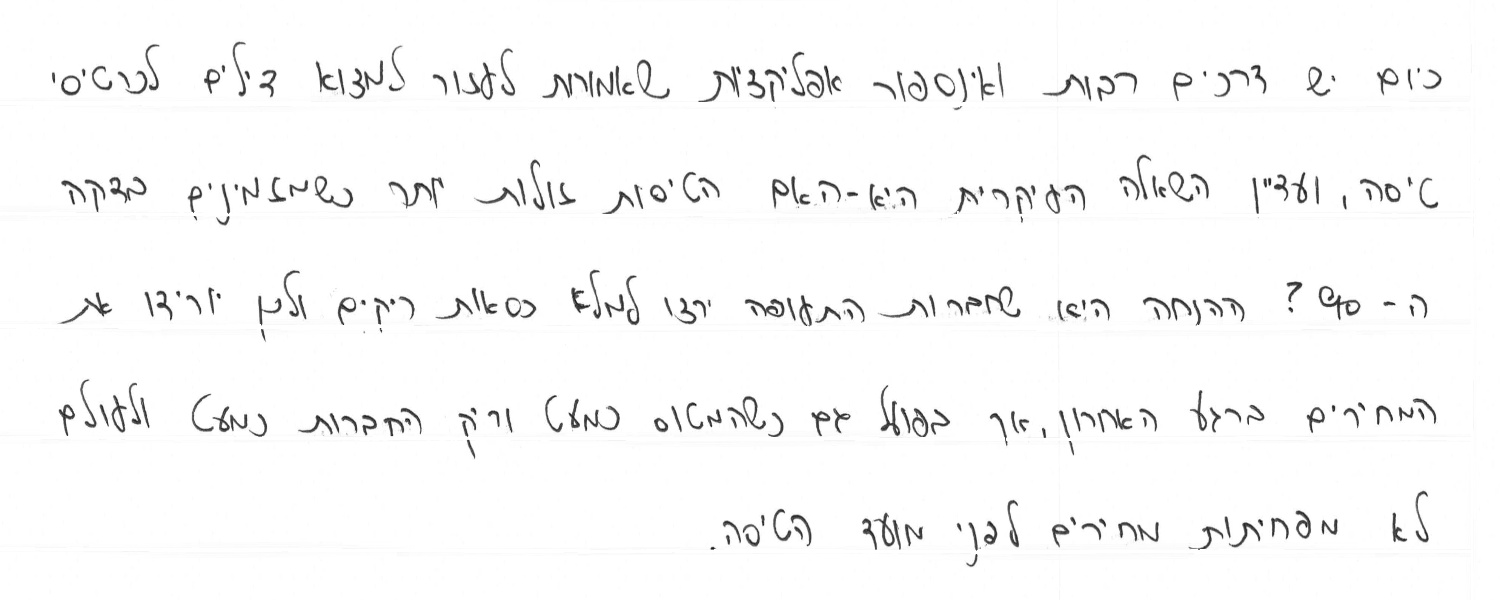 כיום יש דרכים רבות ואינספור אפליקציות שאמורות לעזור למצוא דילים לכרטיסי
טיסה, ועדיין השאלה העיקרית היא-האם הטיסות זולות יותר כשמזמינים בדקה
ה- 90? ההנחה היא שחברות התעופה ירצו למלא כסאות ריקים ולכן יורידו את
המחירים ברגע האחרון, אך בפועל גם כשהמטוס כמעט וריק החברות כמעט ולעולם
לא מפחיתות מחירים לפני מועד הטיסה.